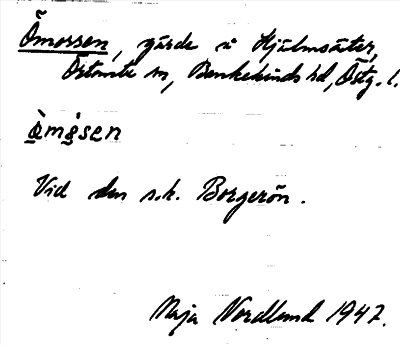 Ömossen, gärde i Hjälmsäter,
Örtomta sn, Bankekinds hd, Östg. l.
ò̤mo̤sen
Vid den s.k. Borgerön.
Maja Nordlund 1947.